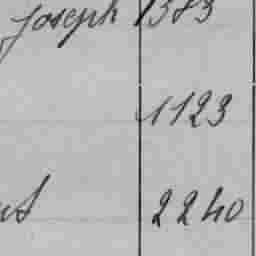 Joseph 1383
1123
2240